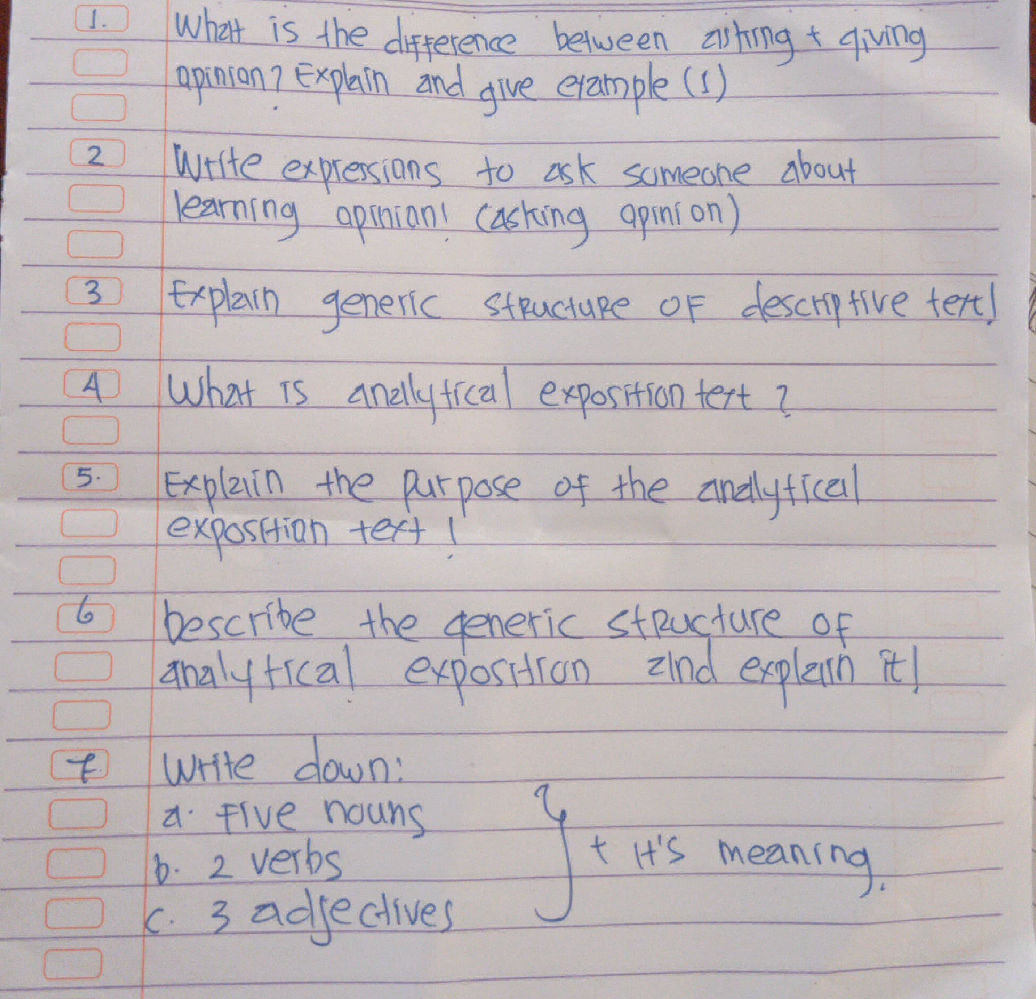 1. What is the difference between asking + giving
opinion? Explain and give example (1)
2 Write expressions to ask someone about
learning opinion! (asking opinion)
3 Explain generic structure of descriptive text!
4 What is analytical exposition text ?
5. Explain the purpose of the analytical
exposition text !
6 Describe the generic structure of
analytical exposition and explain it!
7 Write down:
a. Five nouns
b. 2 verbs
c. 3 adjectives
+ it's meaning.